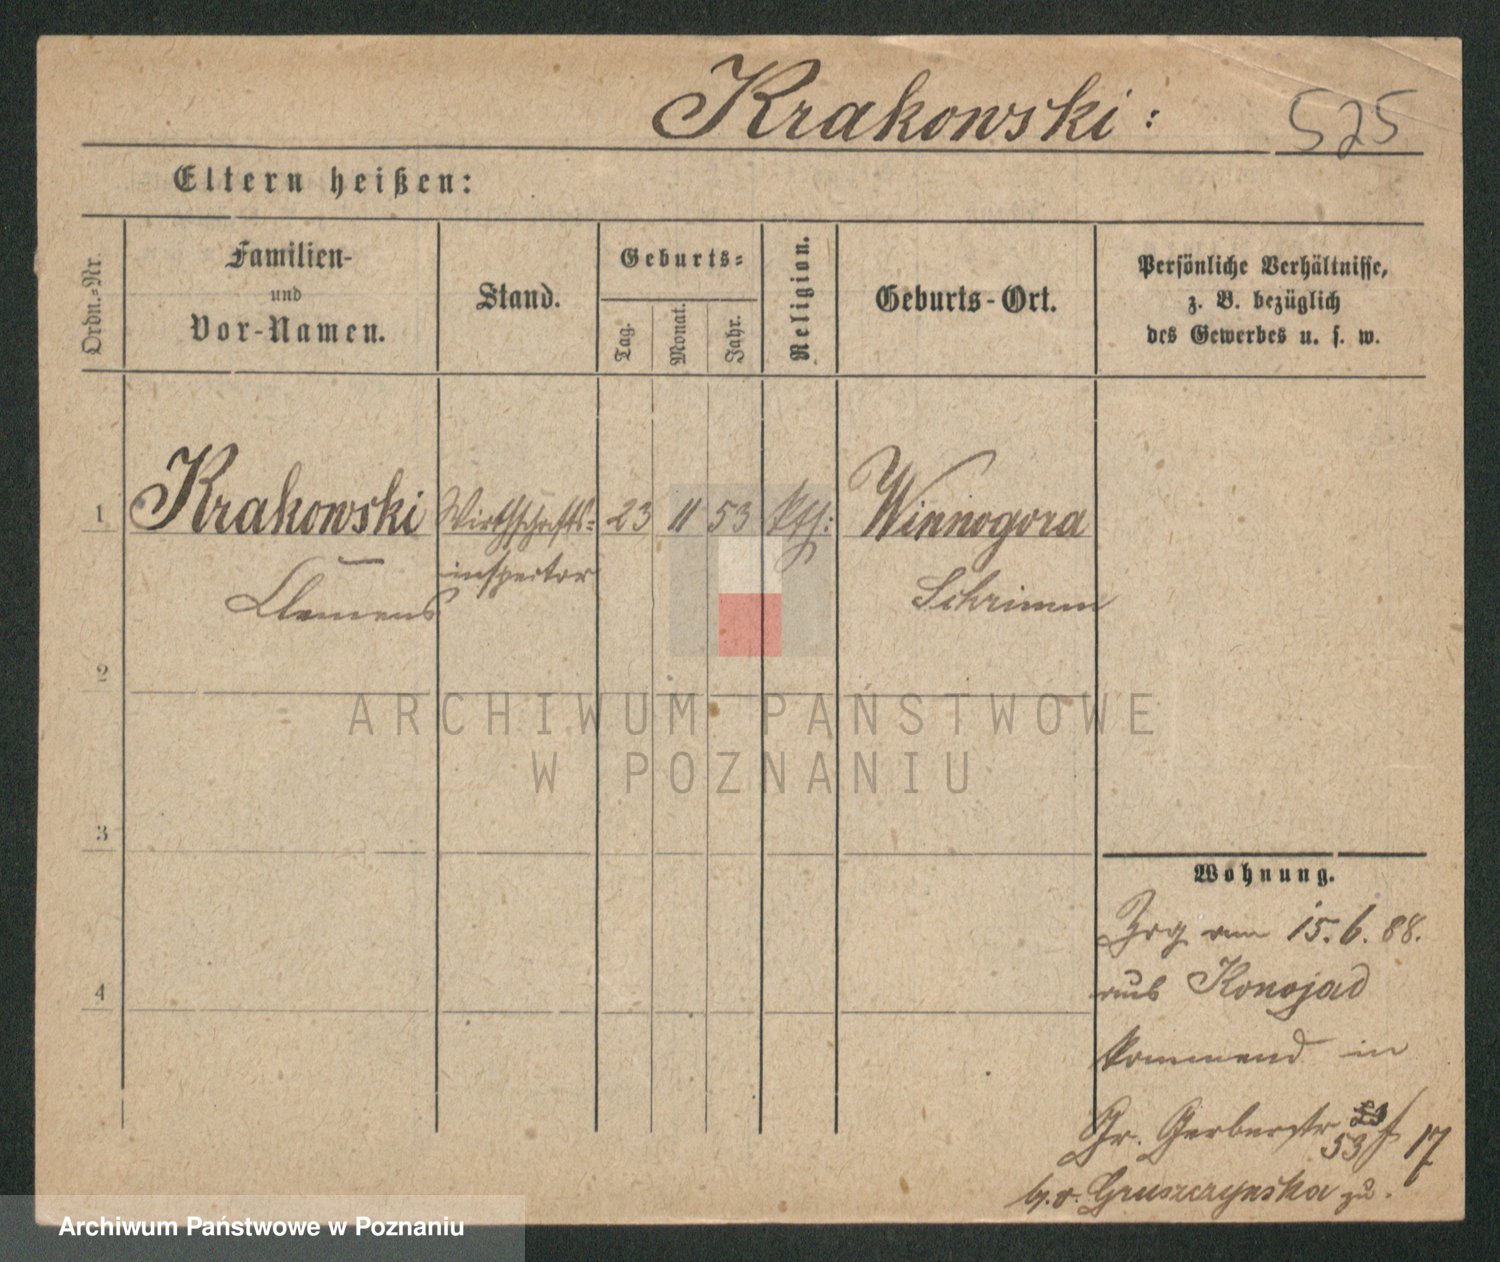 Krakowski:
525
Eltern heißen:
Ordn.-Nr.
Familien-
und
Vor-Namen.
Stand.
Geburts-
Tag.
Monat.
Jahr.
Religion.
Geburts-Ort.
Persönliche Verhältnisse,
z. B. bezüglich
des Gewerbes u. s. w.
1 Krakowski Wirthschafts- 23 11 53 kth: Winnogora
Clemens inspector Schrimm
2
3
4
ARCHIWUM PAŃSTWOWE
W POZNANIU
Wohnung.
Zog am 15.6.88.
aus Konojad
kommend in
Gr. Gerberstr 53 17
Gruszczynska zu.
Archiwum Państwowe w Poznaniu